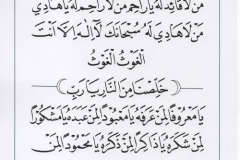 مَنْ لَا قَائِدَ لَهُ يَا رَاحِمَ مَنْ لَا رَاحِمَ لَهُ يَا هَادِيَ
مَنْ لَا هَادِيَ لَهُ سُبْحَانَكَ لَا إِلٰهَ إِلَّا أَنْتَ
الْغَوْثُ الْغَوْثُ
خَلِّصْنَا مِنَ النَّارِ يَا رَبِّ
يَا مَعْرُوفًا لِمَنْ عَرَفَهُ يَا مَعْبُودًا لِمَنْ عَبَدَهُ يَا مَشْكُورًا
لِمَنْ شَكَرَهُ يَا ذَاكِرًا لِمَنْ ذَكَرَهُ يَا مَحْمُودًا لِمَنْ